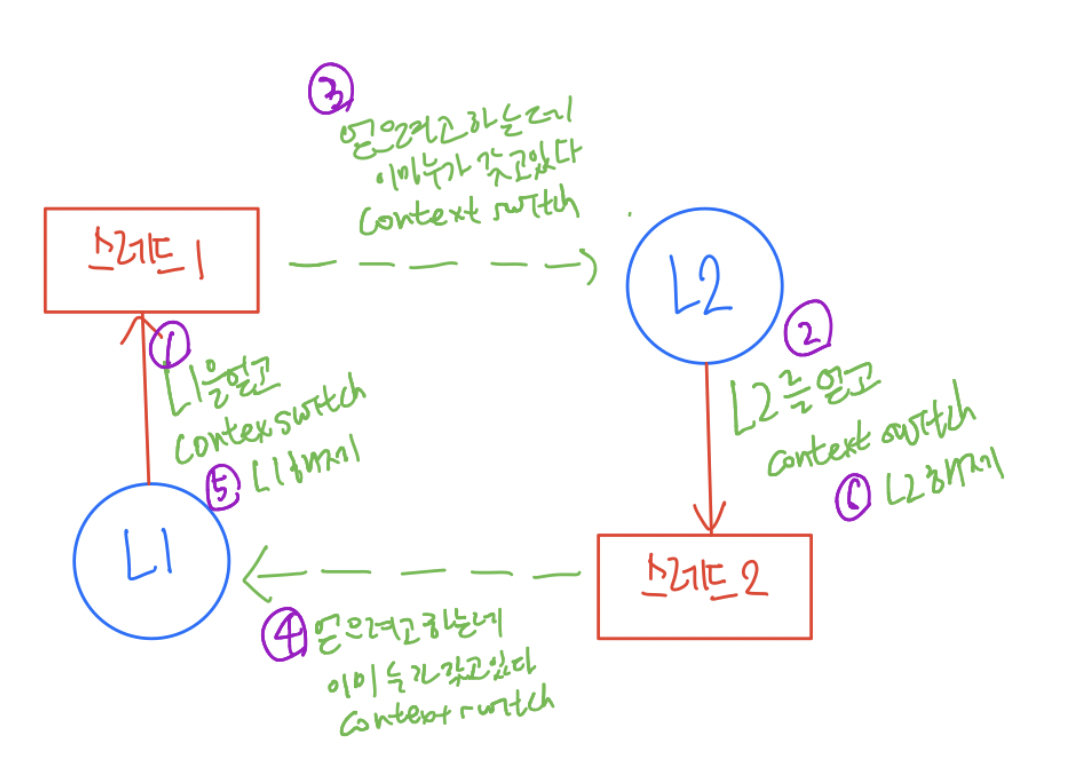 3
얻으려고 하는데
이미 누가 갖고있다
context switch
스레드 1
L2
1
L1을 얻고
contex switch
5 L1 해제
2
L2를 얻고
context switch
6 L2 해제
L1
스레드 2
4 얻으려고 하는데
이미 누가 갖고있다
context switch